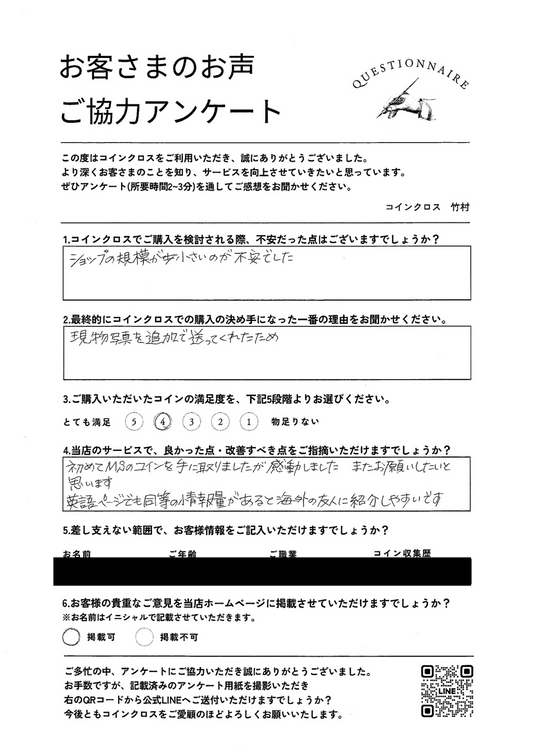 お客さまのお声
ご協力アンケート
QUESTIONNAIRE
この度はコインクロスをご利用いただき、誠にありがとうございました。
より深くお客さまのことを知り、サービスを向上させていきたいと思っています。
ぜひアンケート(所要時間2~3分)を通してご感想をお聞かせください。
コインクロス 竹村
1.コインクロスでご購入を検討される際、不安だった点はございますでしょうか？
ショップの規模が小さいのが不安でした
2.最終的にコインクロスでの購入の決め手になった一番の理由をお聞かせください。
現物写真を追加で送ってくれたため
3.ご購入いただいたコインの満足度を、下記5段階よりお選びください。
とても満足 5 4 3 2 1 物足りない
4.当店のサービスで、良かった点・改善すべき点をご指摘いただけますでしょうか？
初めてMSのコインを手に取りましたが感動しました またお願いしたいと
思います
英語ページでも同等の情報量があると海外の友人に紹介しやすいです
5.差し支えない範囲で、お客様情報をご記入いただけますでしょうか？
お名前 ご年齢 ご職業 コイン収集歴
6.お客様の貴重なご意見を当店ホームページに掲載させていただけますでしょうか？
※お名前はイニシャルで記載させていただきます。
掲載可 掲載不可
ご多忙の中、アンケートにご協力いただき誠にありがとうございました。
お手数ですが、記載済みのアンケート用紙を撮影いただき
右のQRコードから公式LINEへご送付いただけますでしょうか？
今後ともコインクロスをご愛顧のほどよろしくお願いいたします。
LINE